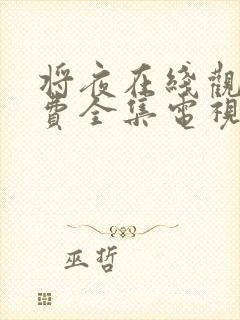 将夜在綫觀
費全集電視
巫哲